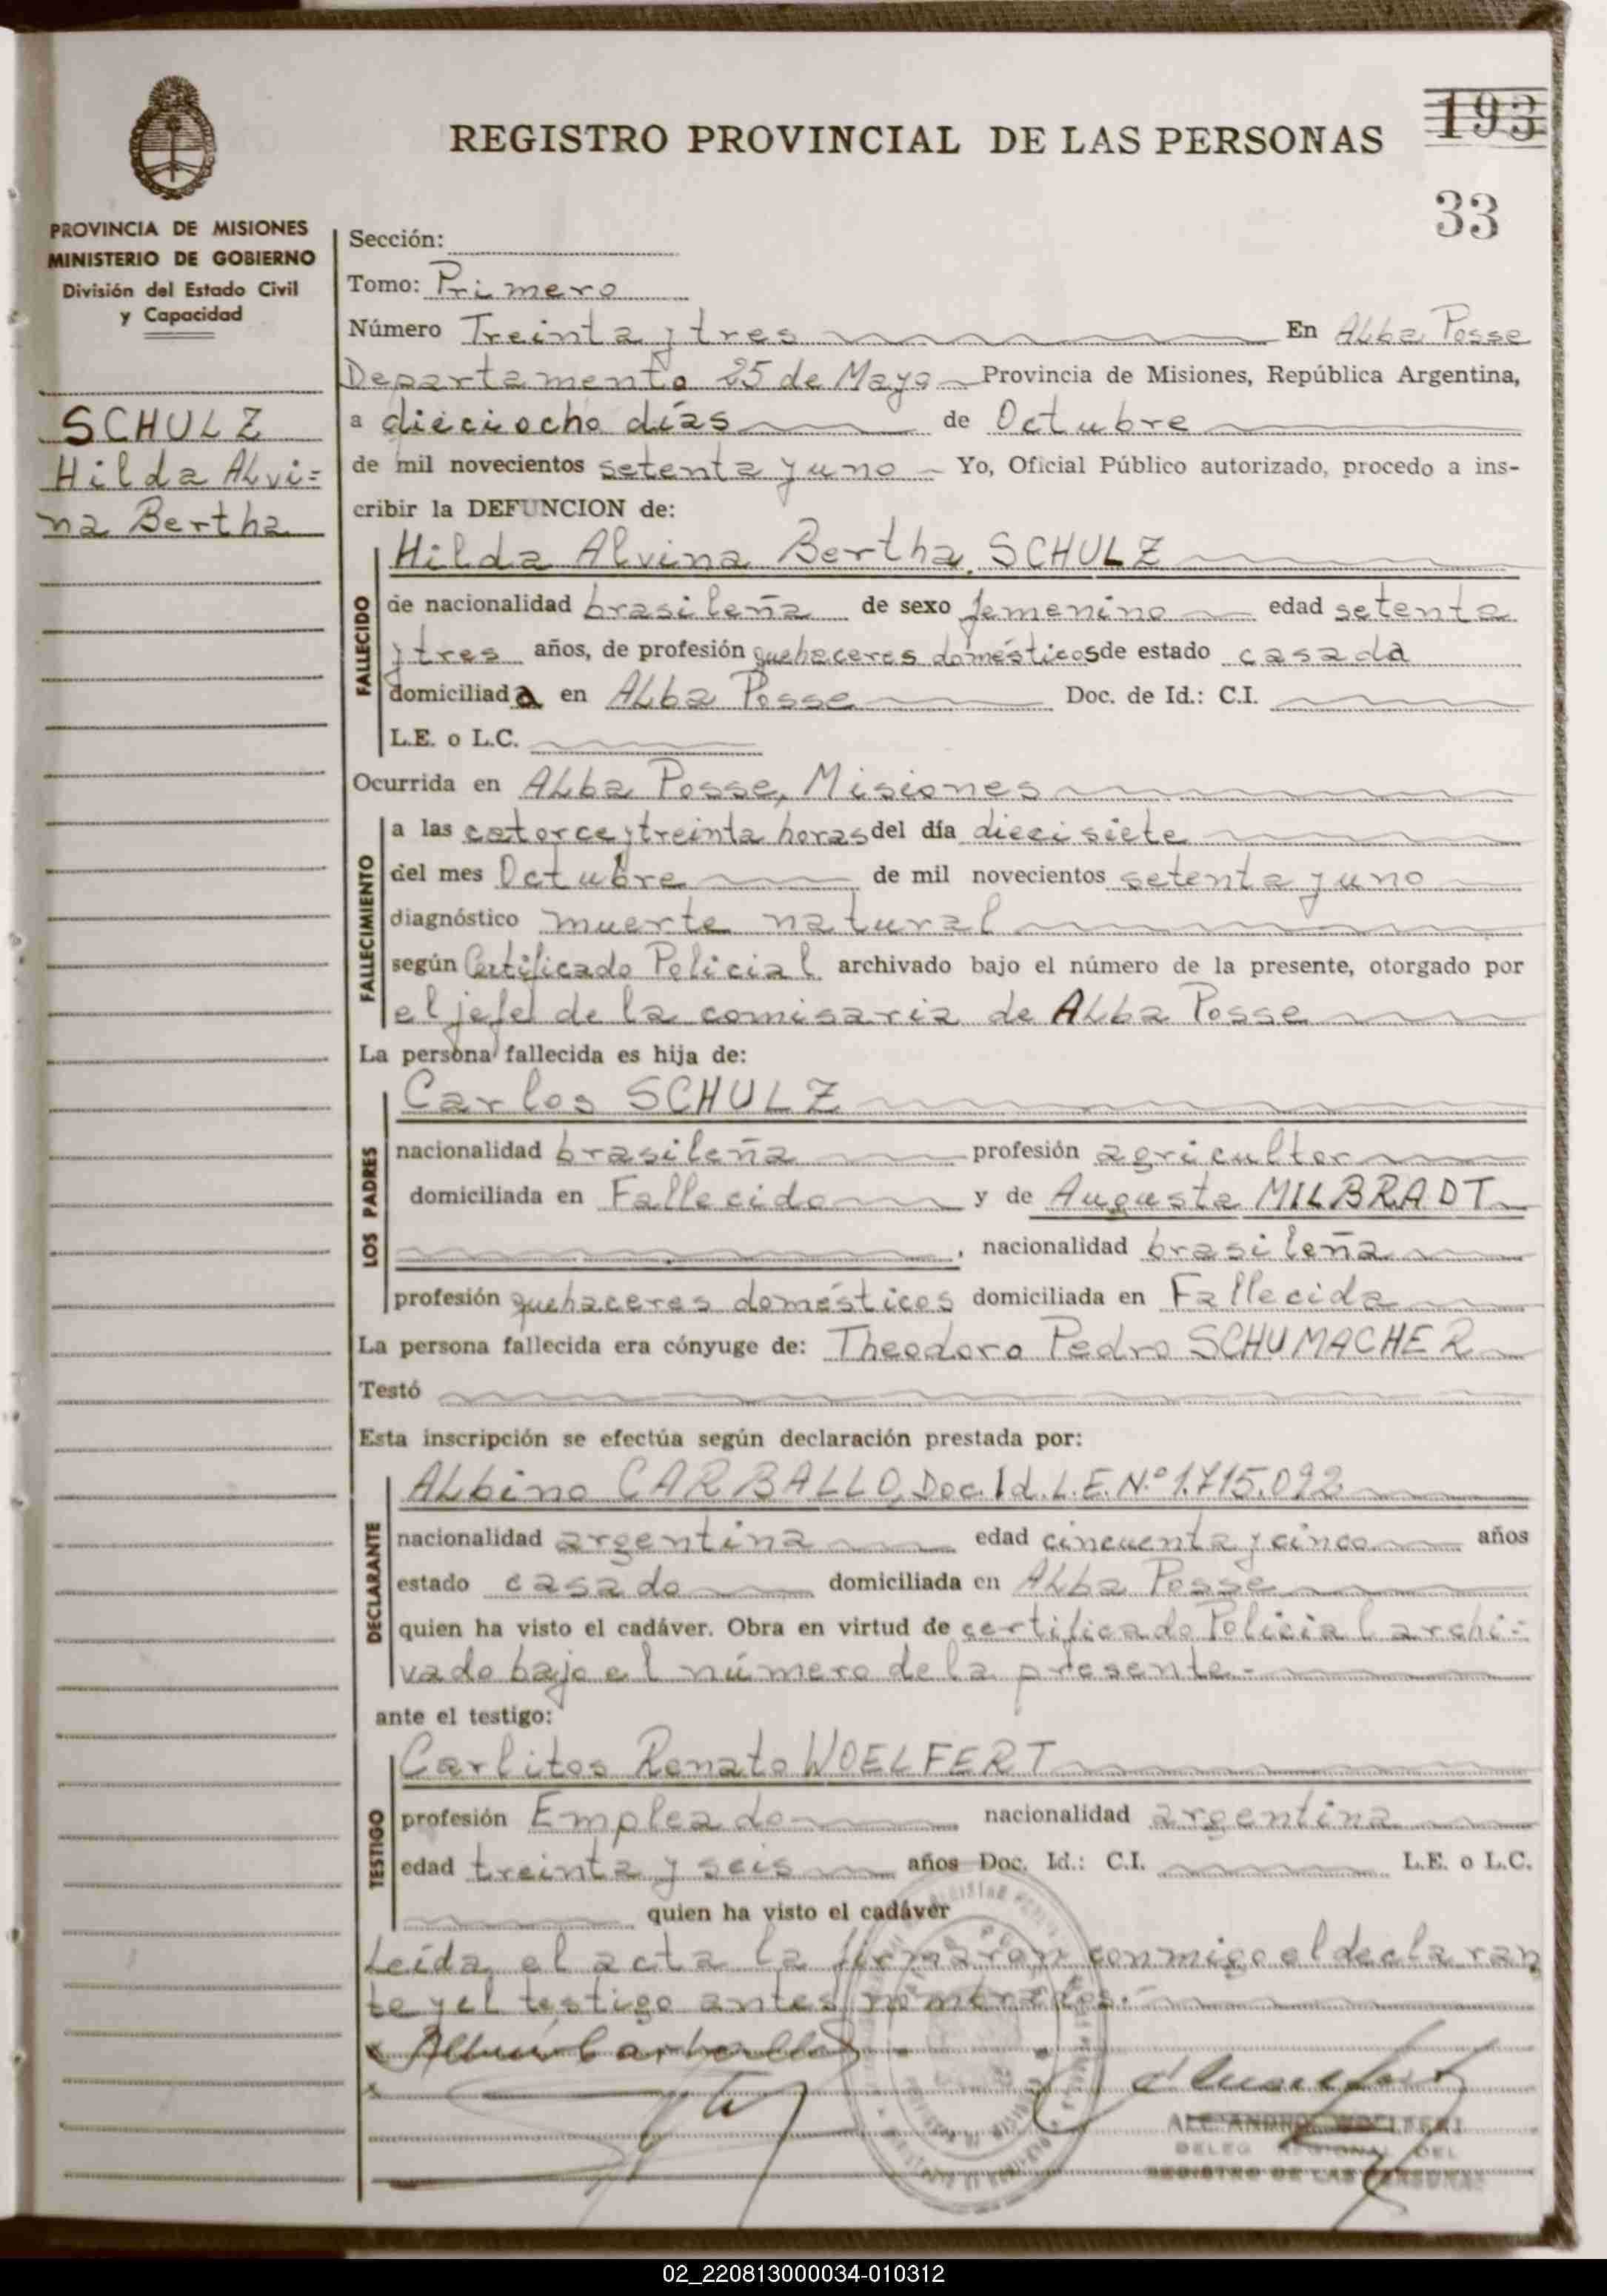 193
REGISTRO PROVINCIAL DE LAS PERSONAS
33
PROVINCIA DE MISIONES
MINISTERIO DE GOBIERNO
División del Estado Civil
y Capacidad
SCHULZ
Hilda Alvi=
na Bertha
Sección:
Tomo: Primero
Número Treinta y tres En Alba Posse
Departamento 25 de Mayo Provincia de Misiones, República Argentina,
a dieciocho días de Octubre
de mil novecientos setenta y uno Yo, Oficial Público autorizado, procedo a ins-
cribir la DEFUNCION de:
Hilda Alvina Bertha SCHULZ
FALLECIDO
de nacionalidad brasileña de sexo femenino edad setenta
y tres años, de profesión quehaceres domésticos de estado casada
domiciliada en Alba Posse Doc. de Id.: C.I.
L.E. o L.C.
Ocurrida en Alba Posse, Misiones
FALLECIMIENTO
a las catorce y treinta horas del día diecisiete
del mes Octubre de mil novecientos setenta y uno
diagnóstico muerte natural
según Certificado Policial archivado bajo el número de la presente, otorgado por
el jefe de la comisaria de Alba Posse
La persona fallecida es hija de:
Carlos SCHULZ
LOS PADRES
nacionalidad brasileña profesión agricultor
domiciliada en Fallecido y de Augusta MILBRADT
, nacionalidad brasileña
profesión quehaceres domésticos domiciliada en Fallecida
La persona fallecida era cónyuge de: Theodoro Pedro SCHUMACHER
Testó
Esta inscripción se efectúa según declaración prestada por:
Albino CARBALLO, Doc. Id. L.E. Nº 1.715.092
DECLARANTE
nacionalidad argentina edad cincuenta y cinco años
estado casado domiciliada en Alba Posse
quien ha visto el cadáver. Obra en virtud de certificado Policial archi=
vado bajo el número de la presente.-
ante el testigo:
Carlitos Renato WOELFERT
TESTIGO
profesión Empleado nacionalidad argentina
edad treinta y seis años Doc. Id.: C.I. L.E. o L.C.
quien ha visto el cadáver
Leída el acta la firmaron conmigo el declaran
te y el testigo antes nombrados.
ALEJANDRO WOELFERT
DELEG REGIONAL DEL
REGISTRO DE LAS PERSONAS
02_220813000034-010312